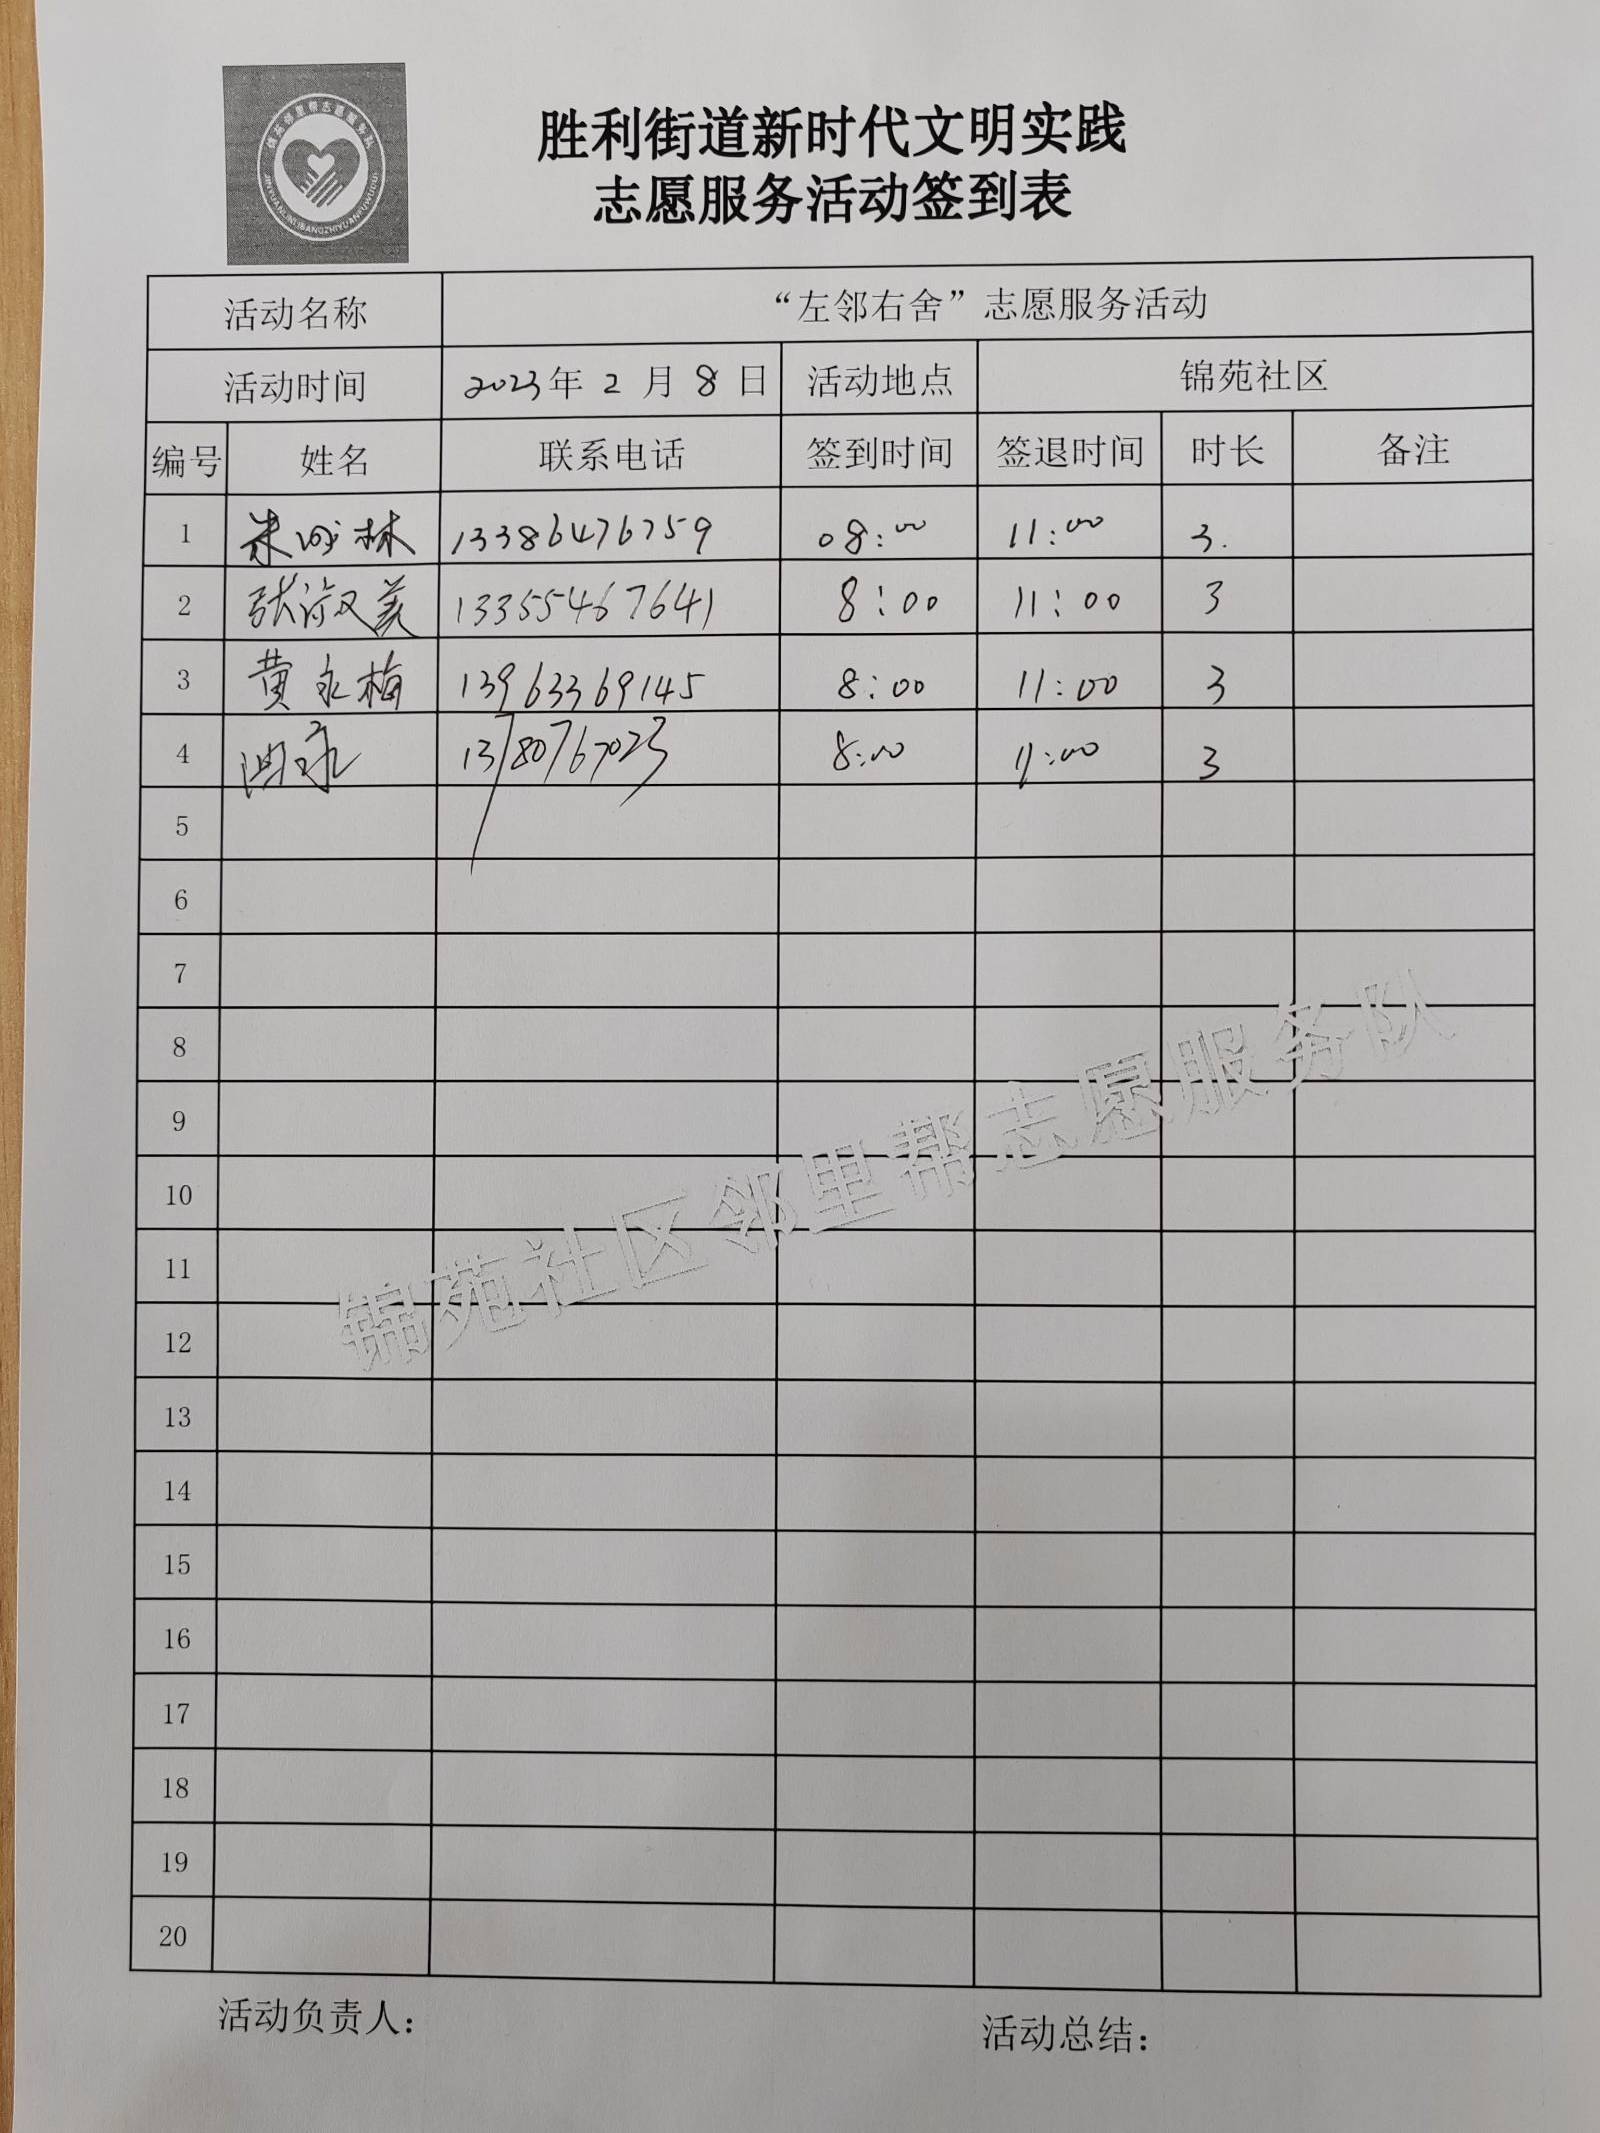 锦苑邻里帮志愿服务队
JINYUANLINLIBANGZHIYUANFUWUDUI
胜利街道新时代文明实践
志愿服务活动签到表
活动名称 “左邻右舍”志愿服务活动
活动时间 2023年 2 月 8 日 活动地点 锦苑社区
编号 姓名 联系电话 签到时间 签退时间 时长 备注
1 林 13386476759 08:00 11:00 3.
2 张淑美 13355467641 8:00 11:00 3
3 黄永梅 13963369145 8:00 11:00 3
4 13780767023 8:00 11:00 3
5
6
7
8
9
10
11
12
13
14
15
16
17
18
19
20
锦苑社区邻里帮志愿服务队
活动负责人: 活动总结: